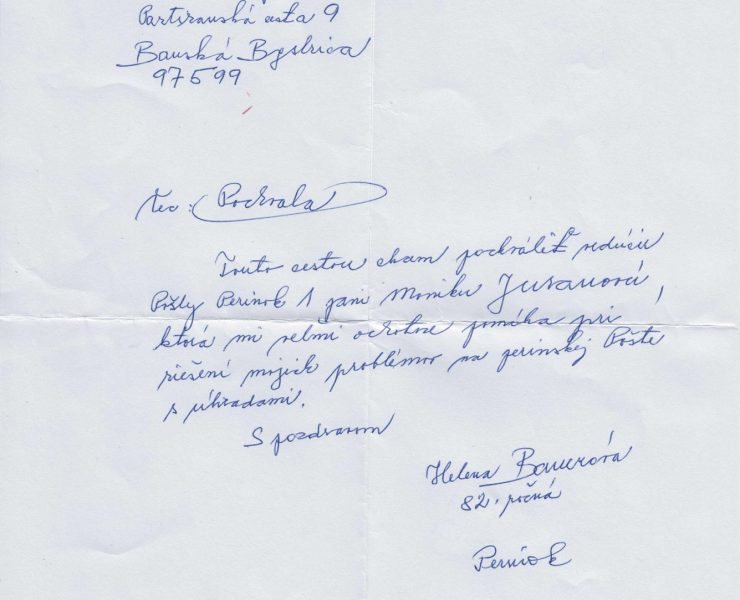 Partizanská cesta 9
Banská Bystrica
97599
Vec: Pochvala
Touto cestou chcem pochváliť vedúcu
Pošty Pezinok 1 pani Moniku
ktorá mi veľmi ochotne pomáha pri
riešení mojich problémov na pezinskej Pošte
s úhradami.
S pozdravom
Helena
82. ročná
Pezinok